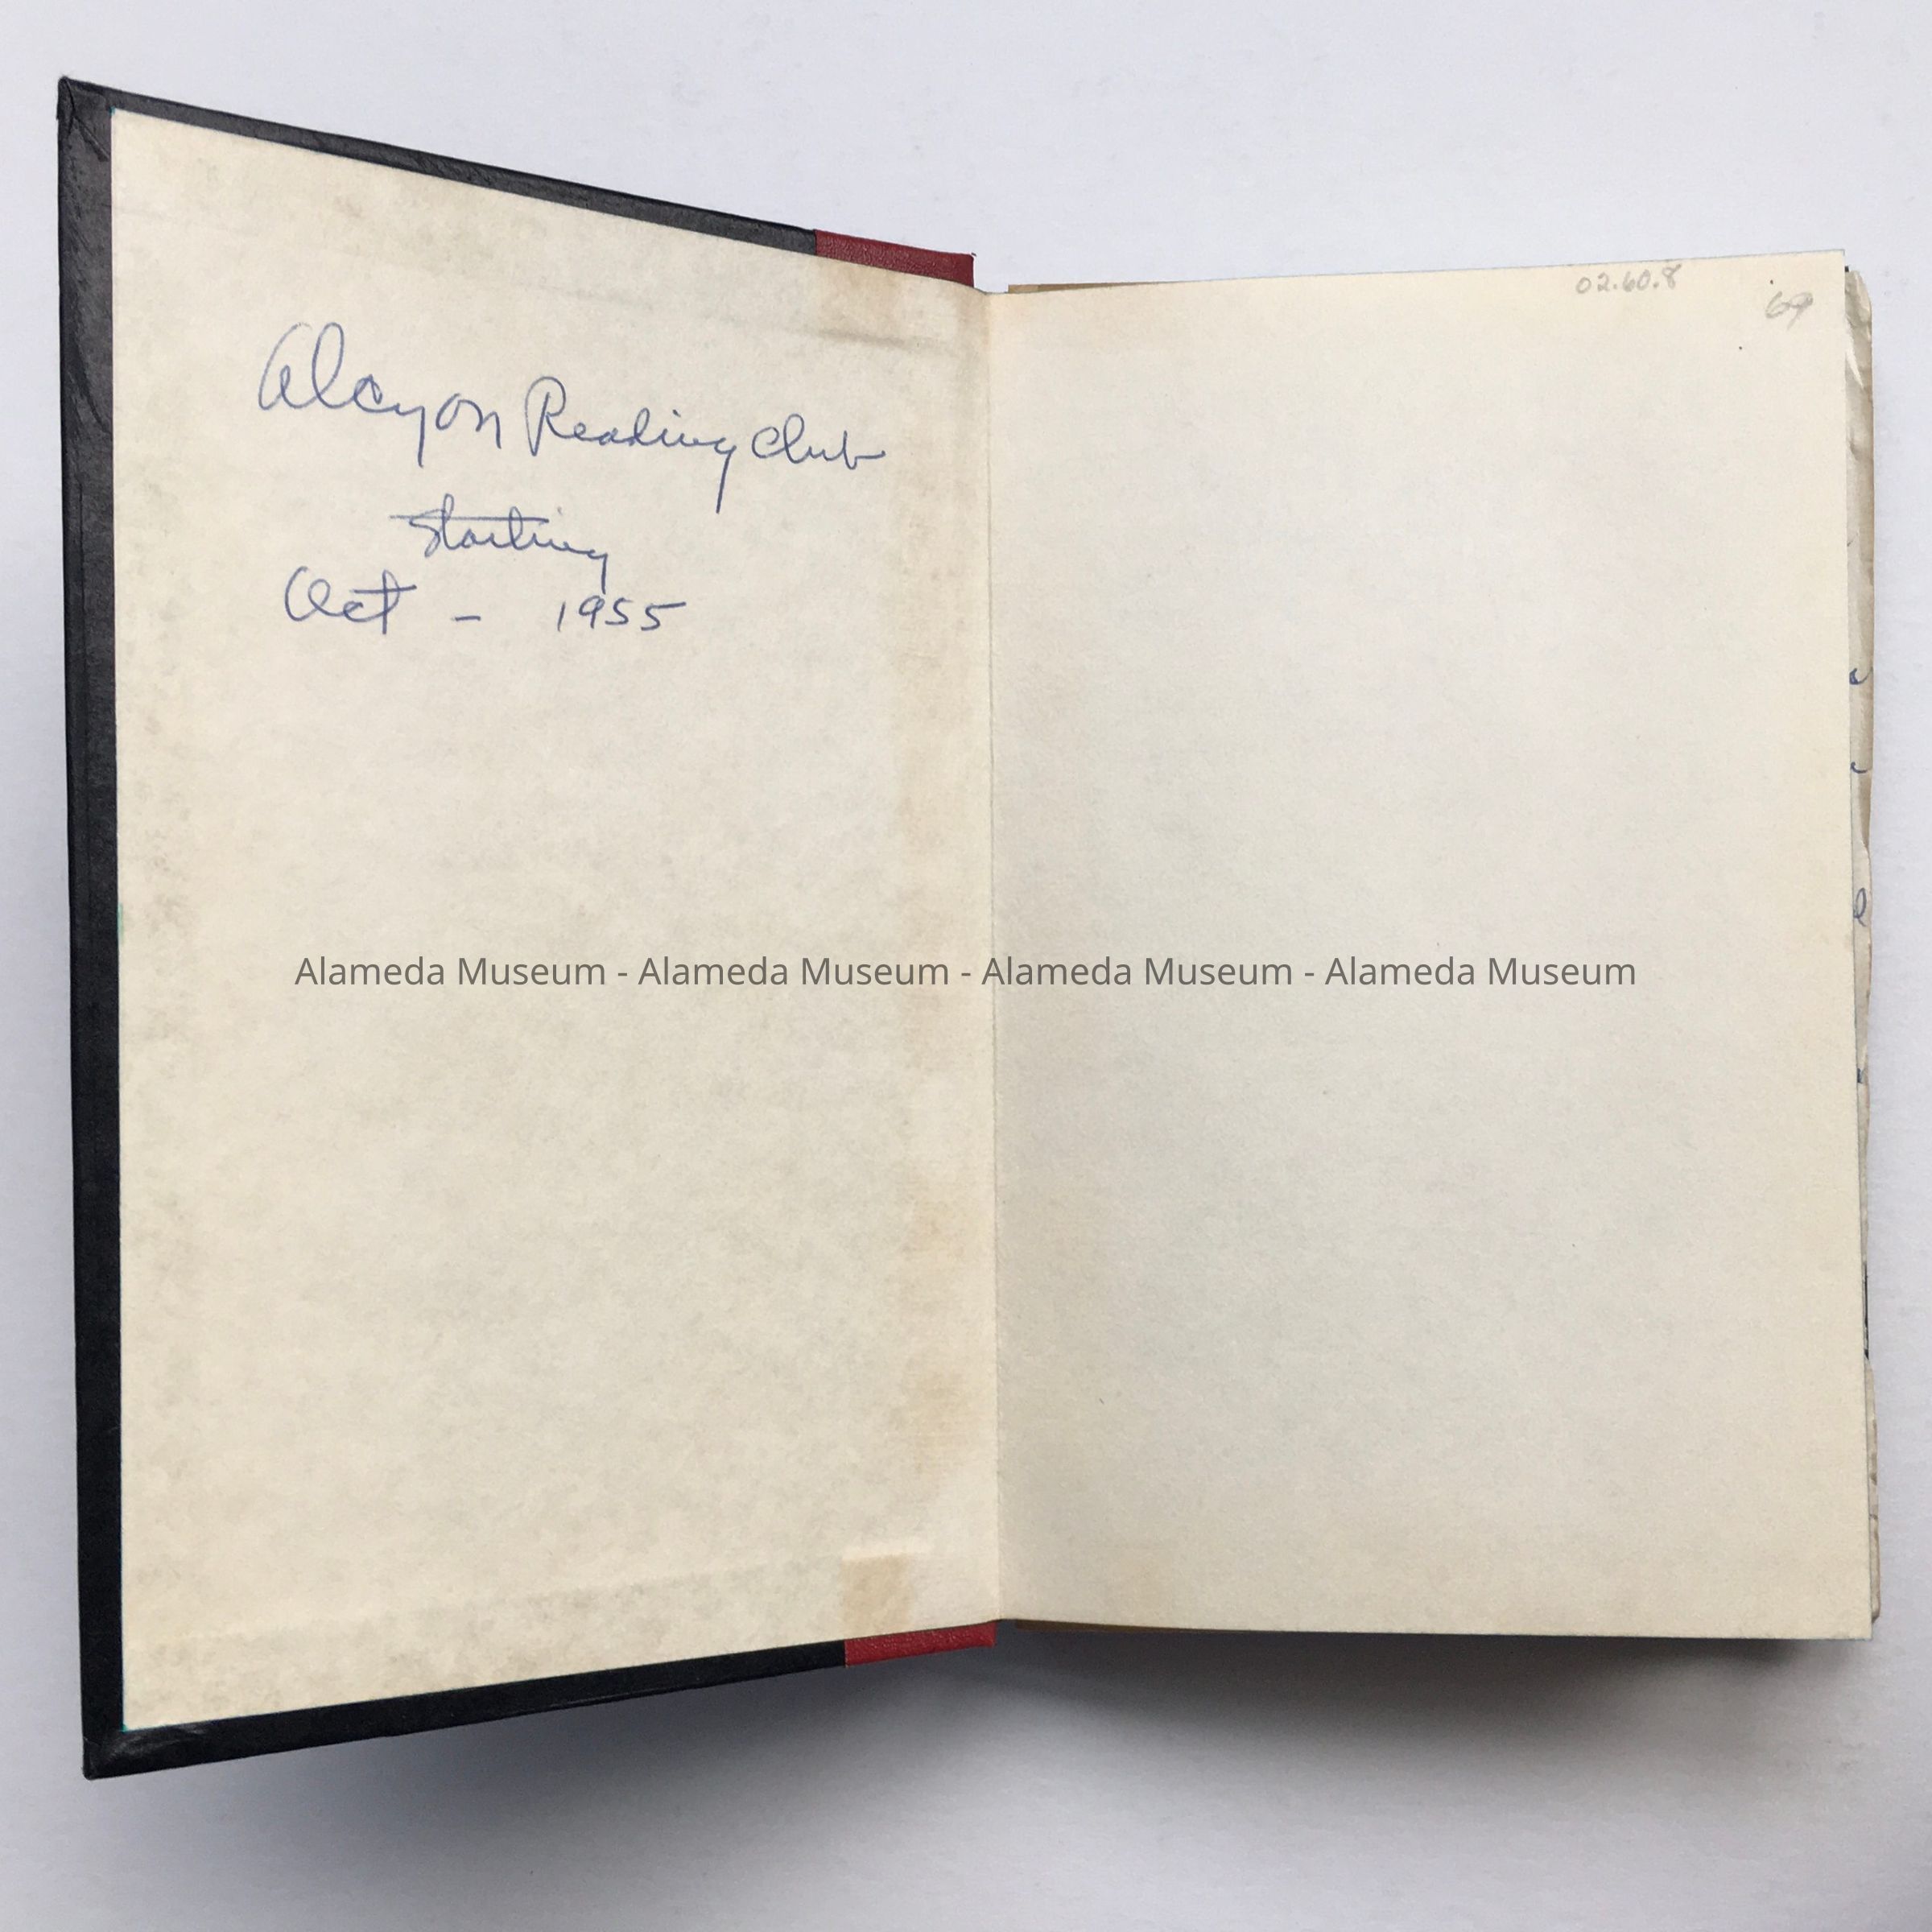 Alcyon Reading Club
Starting
Oct - 1955
02.60.8
69
Alameda Museum - Alameda Museum - Alameda Museum - Alameda Museum